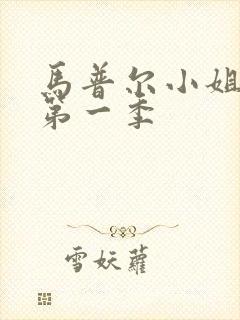 馬普尔小姐
第一季
雪妖蘿